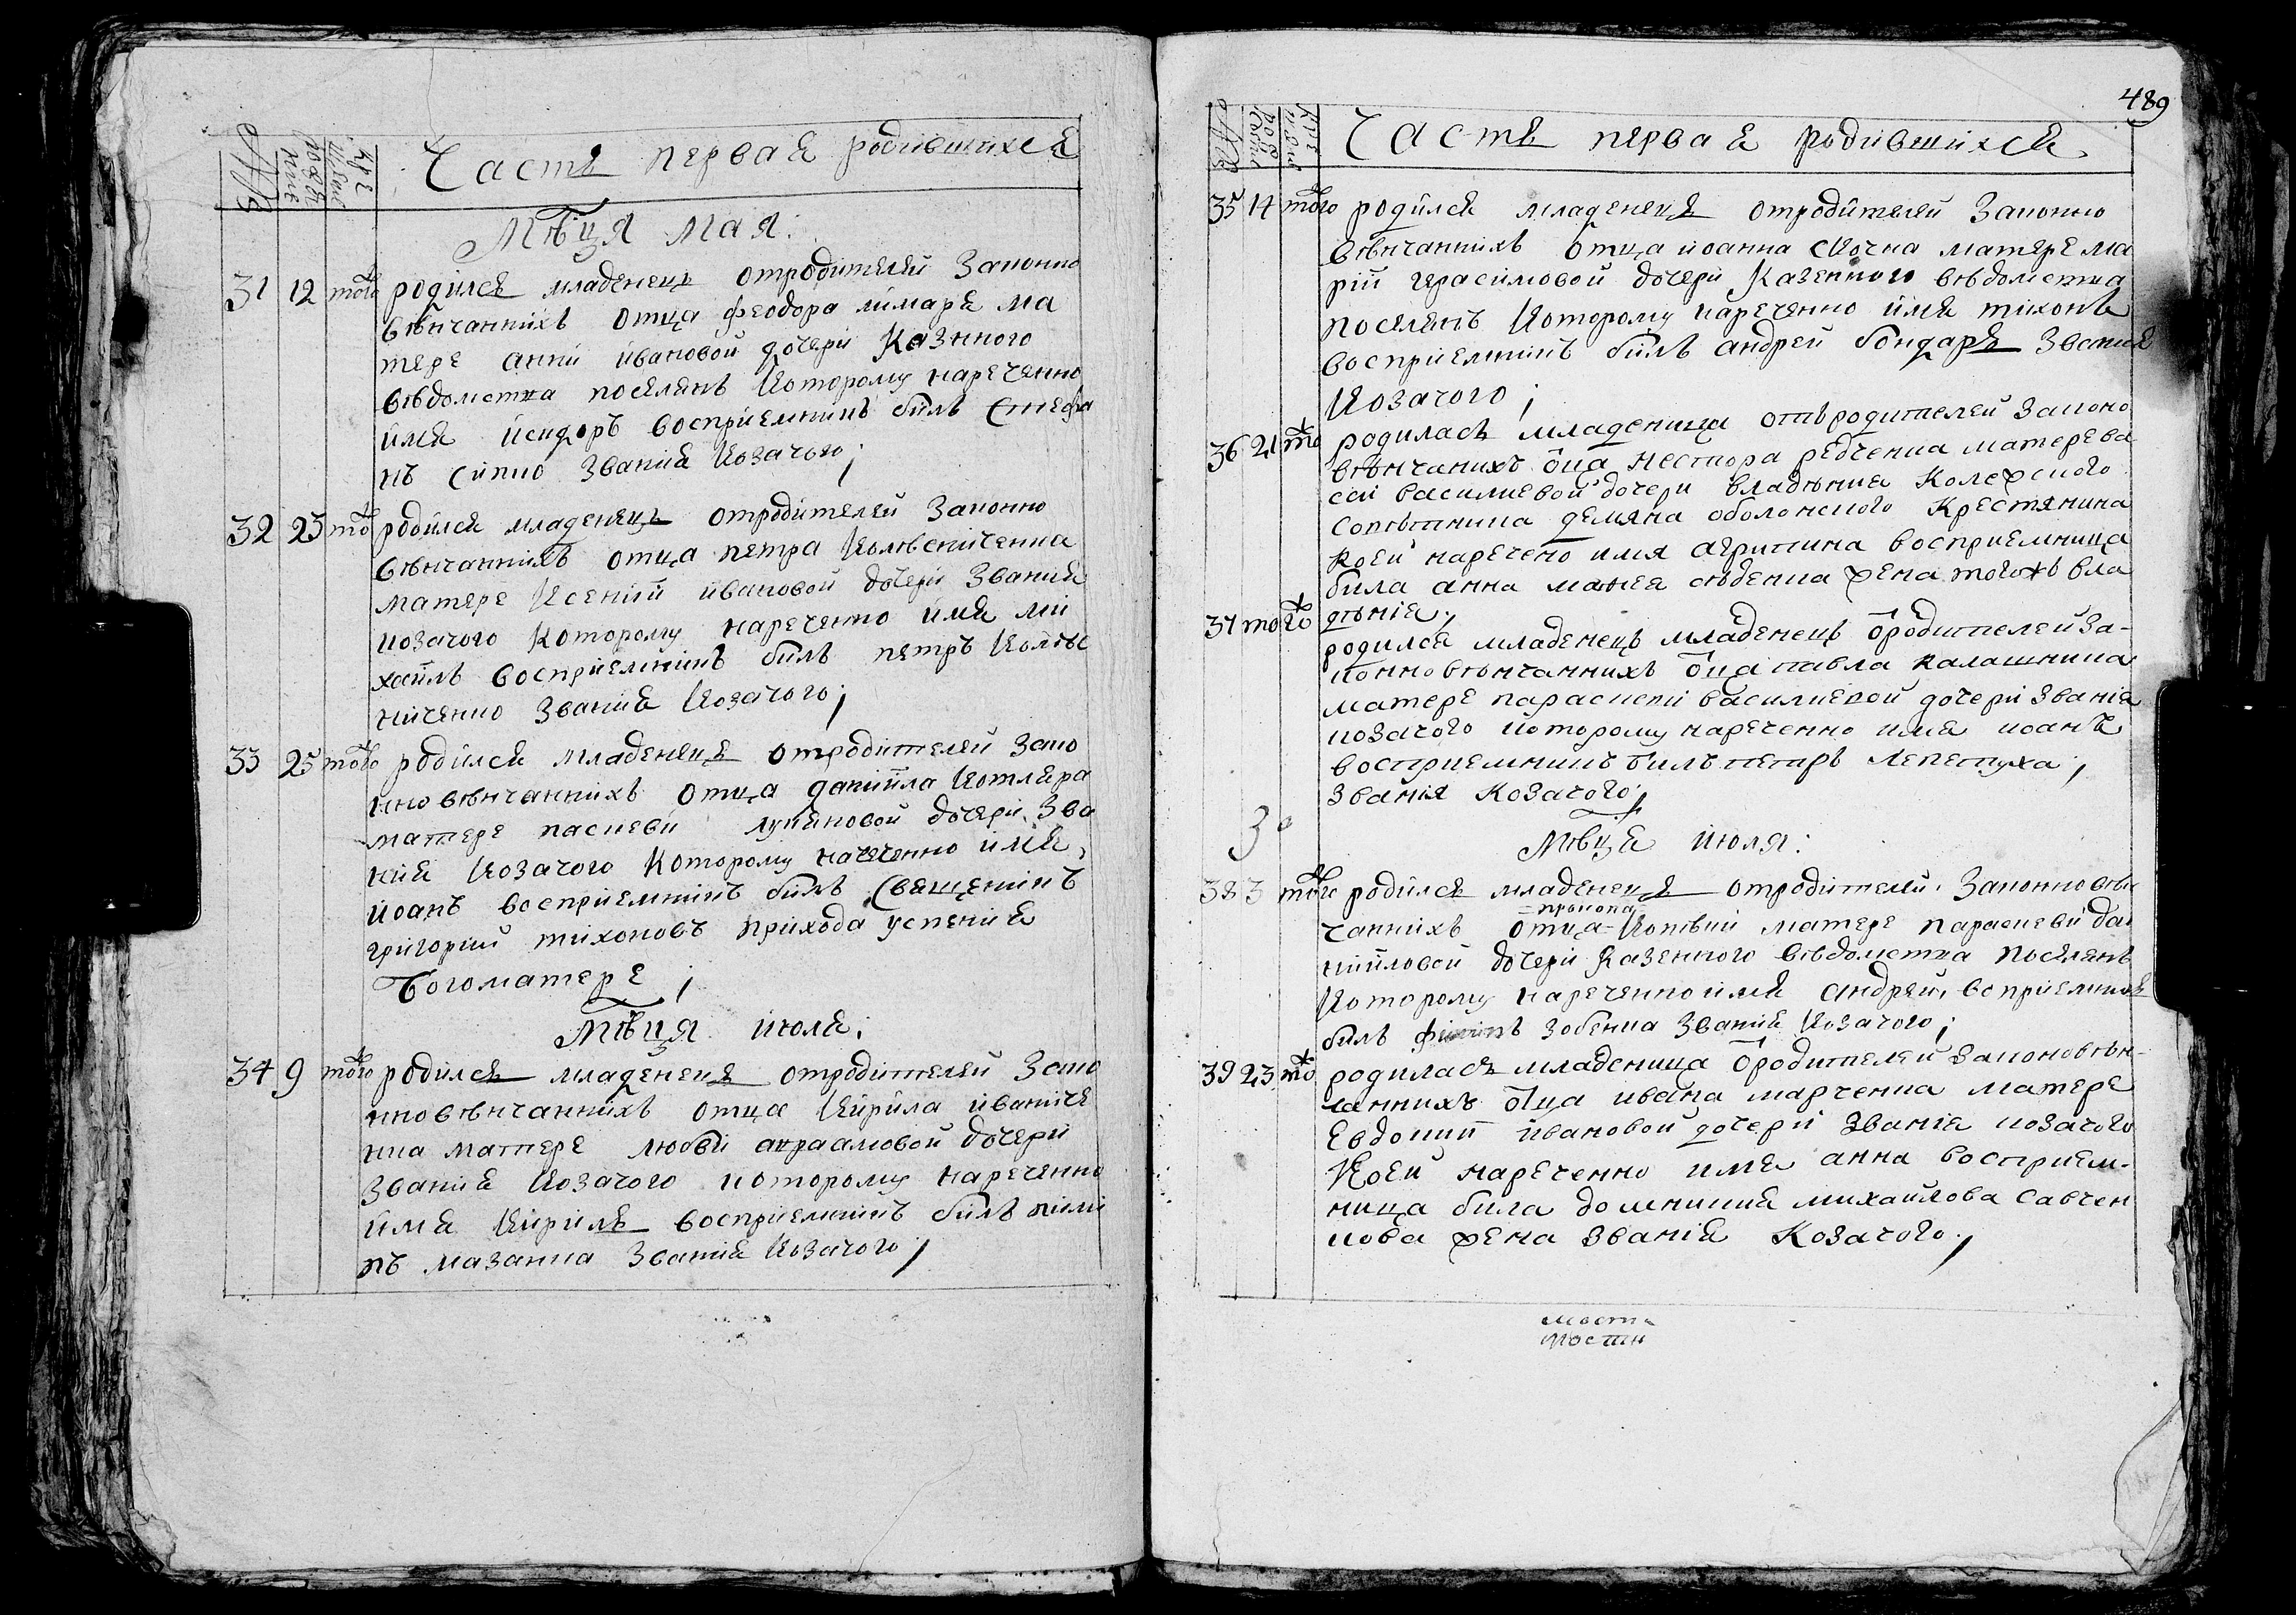 № рожденіе крещеніе Часть первая родившихся
Мѣця мая:
31 12 тогож родился младенецъ отродителей законно
вѣнчаннихъ отца феодора лимаря ма
тере анни ивановой дочери Казнного
вѣдомства поселянъ которому нареченно
имя исидоръ восприемникъ билъ стефа
нъ сипко званія козачого;
32 23 тож родился младенецъ отродителей законно
вѣнчаннихъ отца петра
матере ксении ивановой дочери званія
козачого которому нареченно имя ми
хаилъ восприемникъ билъ петръ
ниченко званія козачого;
33 25 тогож родился младенецъ отродителей зако
нновѣнчаннихъ отца даниила котляра
матере паскеви лукяновой дочери зва
нія козачого которому наченно имя,
иоанъ восприемникъ билъ священикъ
григорий тихоновъ прихода успенія
богоматере;
Мѣця июля:
34 9 тогож родился младенецъ отродителей зако
нновѣнчаннихъ отца кирила иваниче
нка матере любви авраамовой дочери
званія козачого которому нареченно
имя кирилъ восприемникъ билъ пили
пъ мазанка званія козачого;
489
№ рожденіе крещеніе Часть первая родившихся
35 14 тогож родился младенецъ отродителей законно
вѣнчаннихъ отца иоанна скочка матере ма
рии герасимовой дочери Казенного вѣдомства
поселянъ которому нареченно имя тихонъ
восприемникъ билъ андрей бондарь звания
козачого;
36 21 тож родилась младеница отъродителей законо
вѣнчанихъ оца нестора редченка матере ва
сси василиевой дочери владѣнія Колежского
совѣтника демяна оболонского Крестянина
коей наречено имя агрипина восприемница
била анна женa тогожъ вла
дѣнія;
37 тогож родился младенецъ младенецъ ородителей за-
конновѣнчаннихъ оца павла калашника
матере параскеви василиевой дочери званія
козачого которому нареченно имя иоанъ
восприемникъ билъ петръ лепетуха;
званія козачого;
3
Мѣця июля:
38 3 тогож родился младенецъ отродителей законновѣн
прокопа
чаннихъ отца матере параскеви да
нииловой дочери Казенного вѣдомства поселянъ
которому нареченно имя андрей, воприемникъ
билъ зобенка званія козачого;
39 23 тож родилась младеница ородителей законовѣн-
чаннихъ отца ивана марченка матере
Евдокии ивановой дочери званія козачого
Коей нареченно имя анна восприем-
ница била домникия михайлова савчен
кова жена званія Козачого;